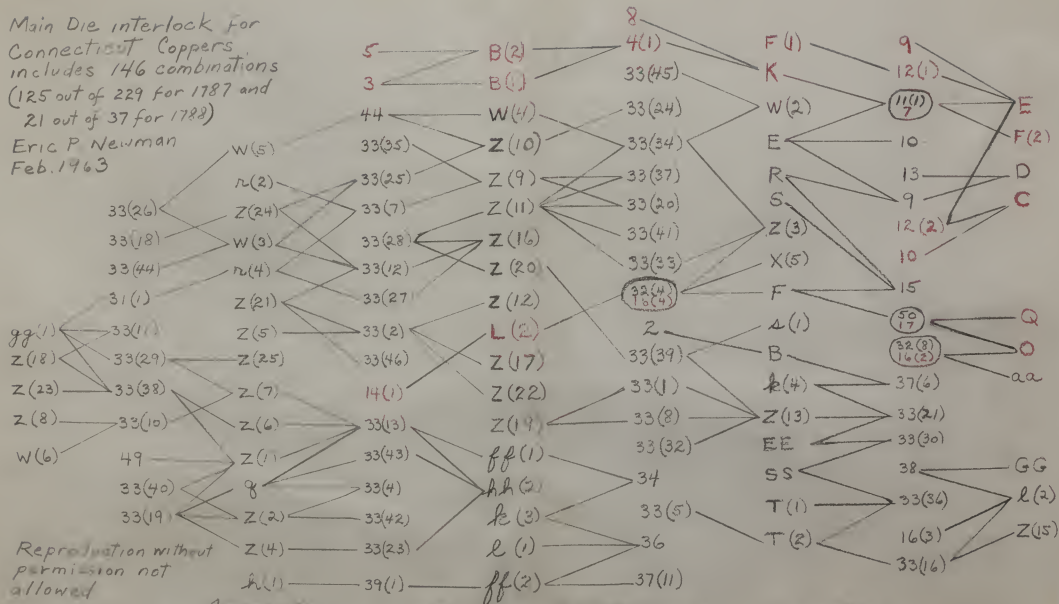 Main Die interlock for
Connecticut Coppers
includes 146 combinations
(125 out of 229 for 1787 and
21 out of 37 for 1788)
Eric P Newman
Feb. 1963
gg(1)
Z(18)
Z(23)
Z(8)
W(6)
33(26)
33(18)
33(44)
31(1)
33(11)
33(29)
33(38)
33(10)
49
33(40)
33(19)
W(5)
n(2)
Z(24)
W(3)
n(4)
Z(21)
Z(5)
Z(25)
Z(7)
Z(6)
Z(1)
q
Z(2)
Z(4)
h(1)
5
3
44
33(35)
33(25)
33(7)
33(28)
33(12)
33(27)
33(2)
33(46)
14(1)
33(13)
33(43)
33(4)
33(42)
33(23)
39(1)
B(2)
B(1)
W(4)
Z(10)
Z(9)
Z(11)
Z(16)
Z(20)
Z(12)
L(2)
Z(17)
Z(22)
Z(19)
ff(1)
hh(2)
k(3)
l(1)
ff(2)
8
4(1)
33(45)
33(24)
33(34)
33(37)
33(20)
33(41)
33(33)
32(4)
16(4)
2
33(39)
33(1)
33(8)
33(32)
34
33(5)
36
37(11)
F(1)
K
W(2)
E
R
S
Z(3)
X(5)
F
s(1)
B
k(4)
Z(13)
EE
SS
T(1)
T(2)
9
12(1)
11(1)
7
10
13
9
12(2)
10
15
50
17
32(8)
16(2)
37(6)
33(21)
33(30)
38
33(36)
16(3)
33(16)
E
F(2)
D
C
Q
O
aa
GG
l(2)
Z(15)
Reproduction without
permission not
allowed